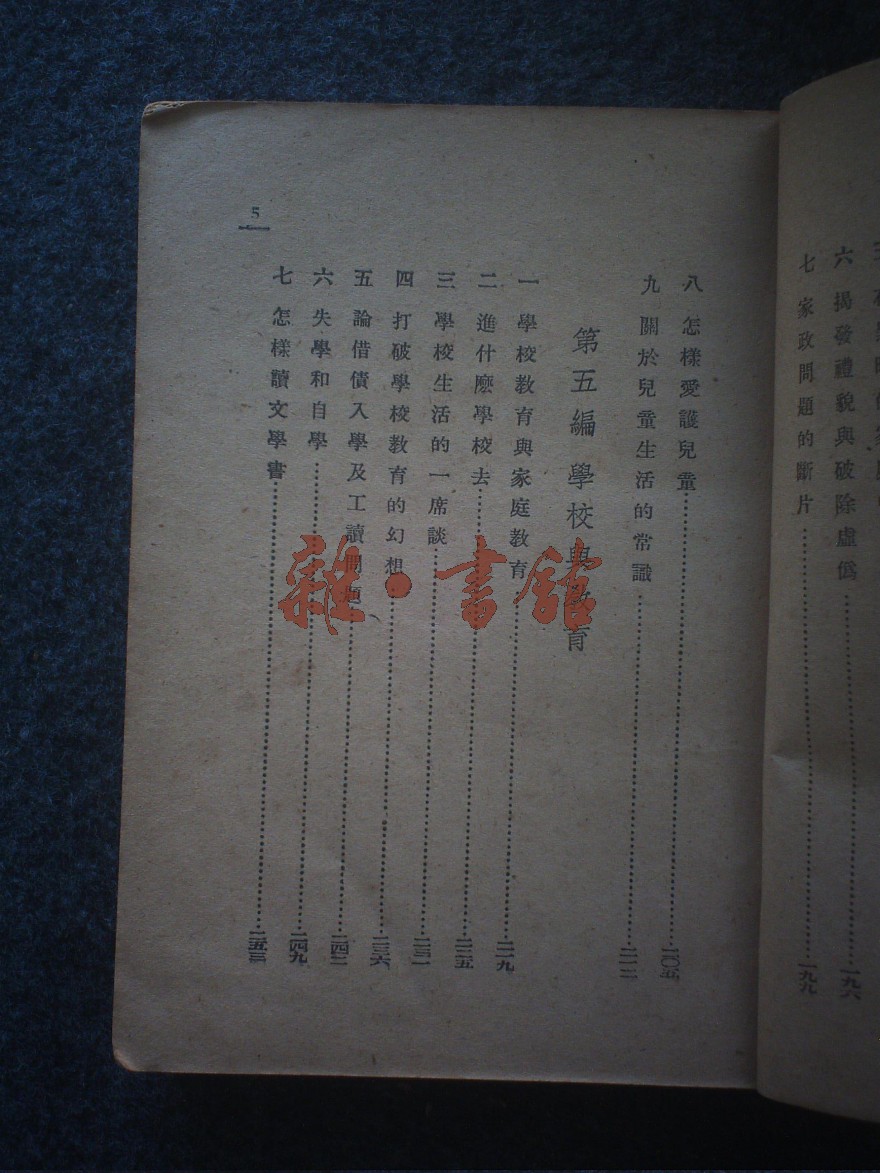 六 揭發禮貌與破除虛僞……一九六
七 家政問題的斷片……一九九
八 怎樣愛護兒童……二〇五
九 關於兒童生活的常識……
第五編 學校與教育
一 學校教育與家庭教育……二一九
二 進什麽學校去……二二五
三 學校生活的一席談……
四 打破學校教育的幻想……二三六
五 論借債入學及工讀問題……二四二
六 失學和自學……二四九
七 怎樣讀文學書……二五三
5
雜·書館